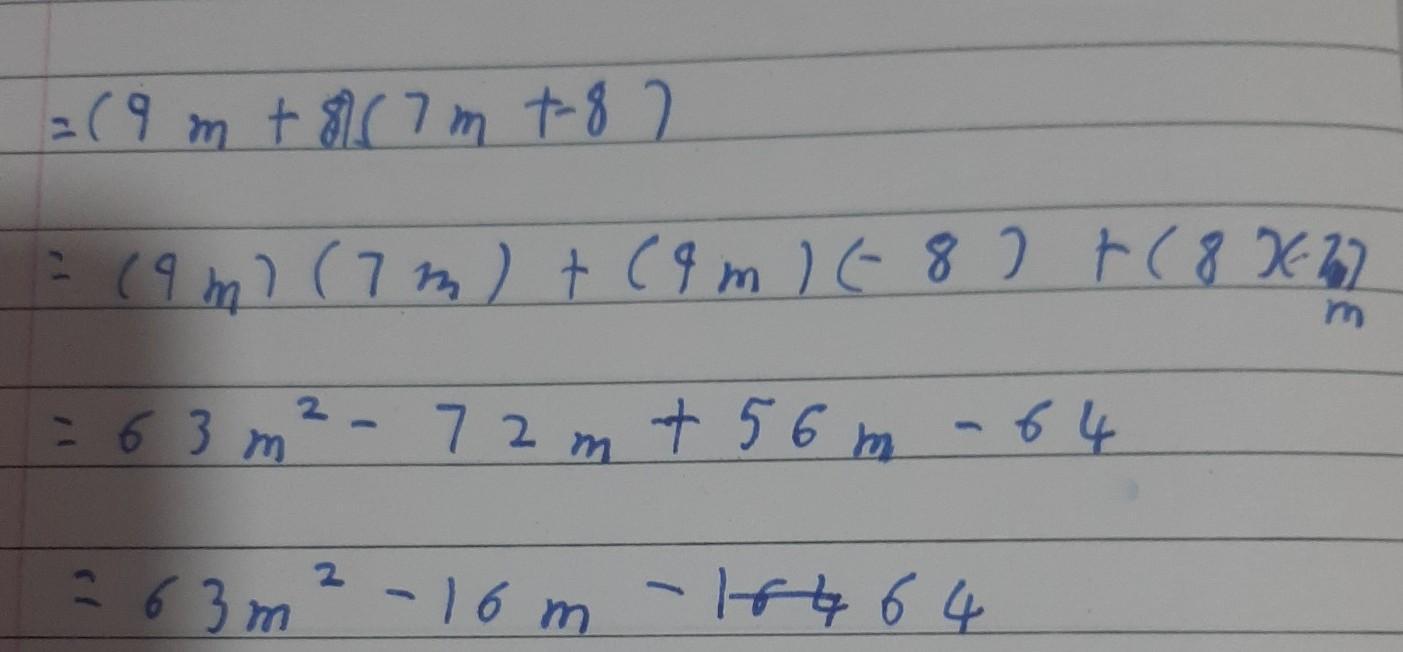 =(9m+8)(7m+-8)
=(9m)(7m)+(9m)(-8)+(8)(
m
=63m²-72m+56m-64
=63m²-16m-64